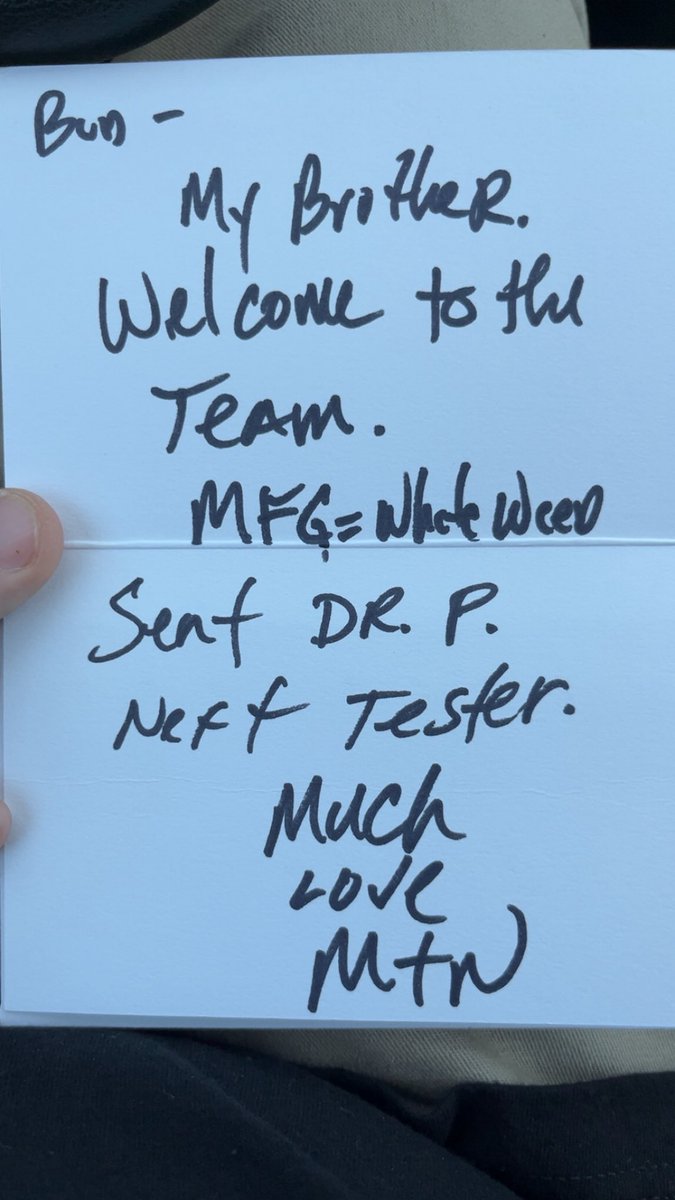 Bun -
My Brother.
Welcome to the
Team.
MFG = White Weed
Sent DR. P.
Next Tester.
Much
Love
MtN